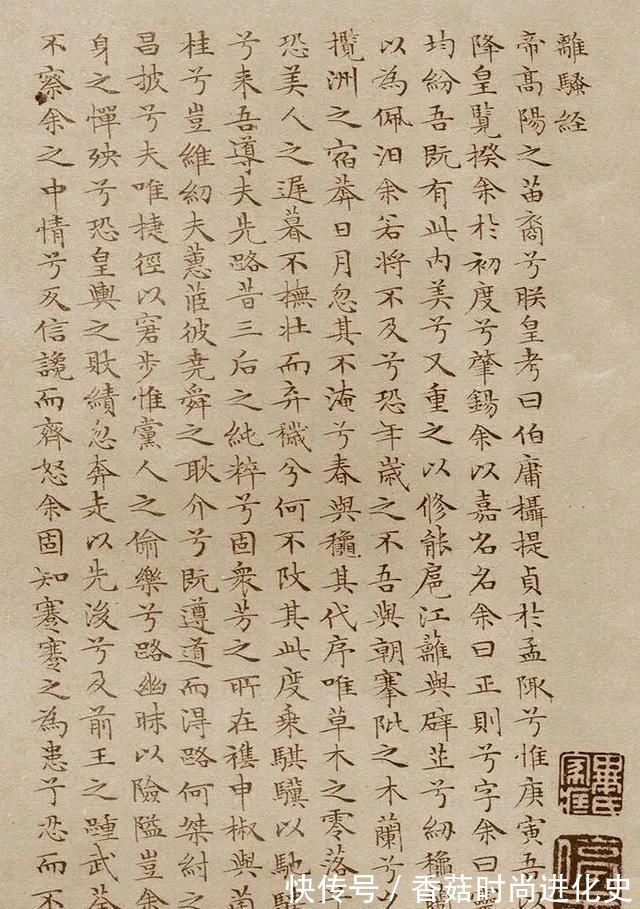 離騷経
帝髙陽之苗裔兮朕皇考曰伯庸攝提貞於孟陬兮惟庚寅吾
降皇覽揆余於初度兮肇錫余以嘉名名余曰正則兮字余曰
均紛吾既有此内美兮又重之以修能扈江蘺與辟芷兮紉穐
以為佩汨余若将不及兮恐年歳之不吾與朝搴阰之木蘭兮
攬洲之宿莽日月忽其不淹兮春與穐其代序唯草木之零落
恐美人之遲暮不撫壮而弃穢兮何不改其此度乗騏驥以馳
兮来吾導夫先路昔三后之純粹兮固衆芳之所在雜申椒與菌
桂兮豈維紉夫蕙茝彼堯舜之耿介兮既遵道而得路何桀紂之
昌披兮夫唯捷徑以窘步惟黨人之偷樂兮路幽昧以險隘豈余
身之憚殃兮恐皇輿之敗績忽奔走以先後兮及前王之踵武荃
不察余之中情兮反信讒而齊怒余固知謇謇之為患兮忍而不
快传号/香菇时尚进化史